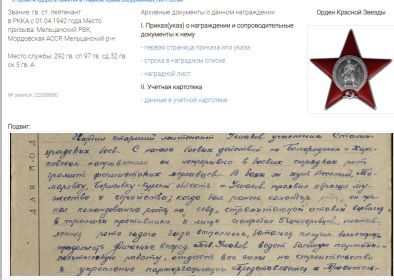 Звание: гв. ст. лейтенант
в РККА с 01.04.1942 года Место
призыва: Мельцанский РВК,
Мордовская АССР, Мельцанский р-н
Место службы: 292 гв. сп 97 гв. сд 32 гв.
ск 5 гв. А
№ записи: 22008680
Архивные документы о данном награждении
I. Приказ(указ) о награждении и сопроводительные
документы к нему
- первая страница приказа или указа
- строка в наградном списке
- наградной лист
II. Учетная картотека
- данные в учетной картотеке
Орден Красной Звезды
Подвиг:
Гвардии старший лейтенант Ушаков участник Сталин-
градских боев. С начала боевых действий на Белгородском и Харь-
ковском направлениях он непрерывно в боевых порядках рот
громит фашистских мерзавцев. В боях за хут. Веселый, То-
маровку, Борисовку Курской области т. Ушаков проявил образцы му-
жества и героизма; когда был ранен командир роты, он при-
нял командование ротой на себя, стремительной атакой ворвался
в траншеи противника и лично истребил гитлеровцев,
ленная роте задача была выполнена, батальон получил возможность
продолжать движение вперед. Тов. Ушаков ведет большую партийно-
политическую работу, отдает все силы на строительство
и укрепление парторганизации